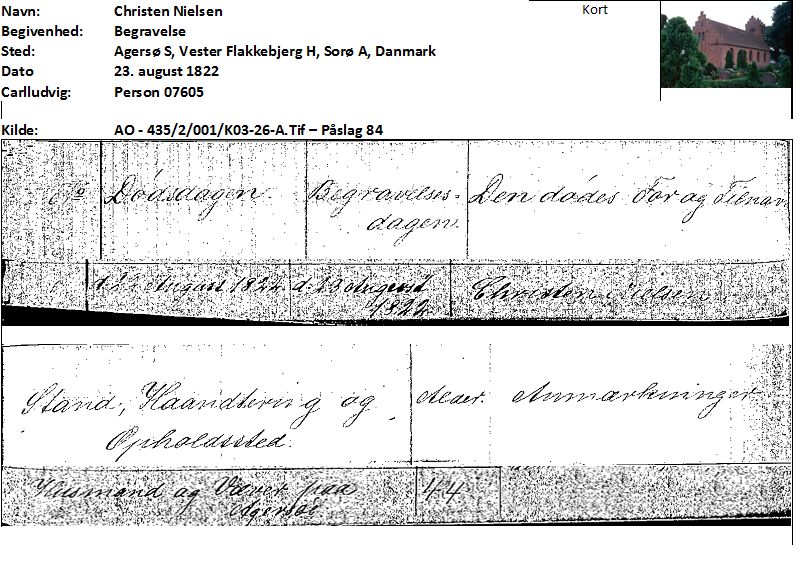 Navn: Christen Nielsen
Kort
Begivenhed: Begravelse
Sted: Agersø S, Vester Flakkebjerg H, Sorø A, Danmark
Dato 23. august 1822
Carlludvig: Person 07605
Kilde: AO - 435/2/001/K03-26-A.Tif – Påslag 84
No Dødsdagen. Begravelses- Den dødes For og Tilnavn
dagen.
d. 22 August 1822 d. 23 August Christen Nielsen
1822
Stand, Haandtering og Alder. Anmærkninger
Opholdssted.
Huusmand og Væver paa 44
Agersøe